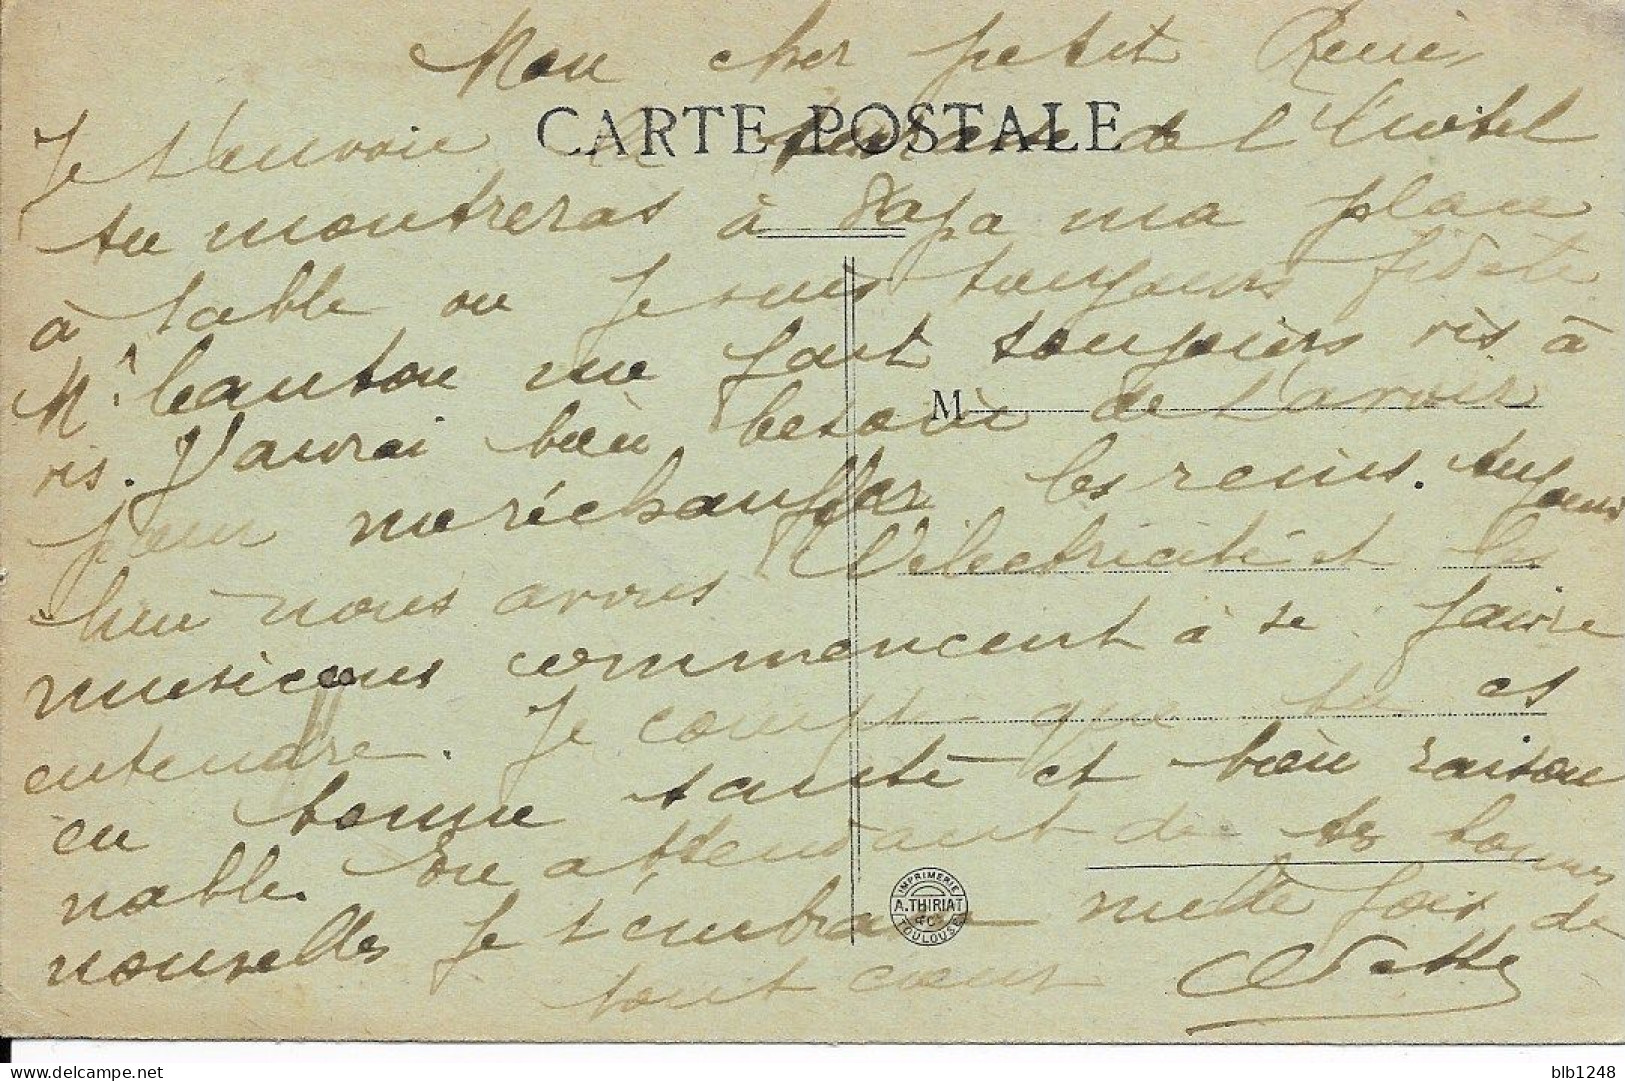 Mon cher petit René
CARTE POSTALE
Je t'envoie de l'hotel
tu montreras à Papa ma place
à table ou je suis toujours fidèle
Mr me fait toujours vis à
vis. J'aurai bien besoin de l'avoir
M
pour me réchauffer les reins. Aujour
hui nous avons l'électricité et les
musiciens commencent à se faire
entendre. Je compte que tu es
en bonne santé et bien raison
nable. En attendant de tes bonnes
nouvelles je t'embrasse mille fois de
tout cœur Odette
IMPRIMERIE
A. THIRIAT
& Cie
TOULOUSE
blb1248